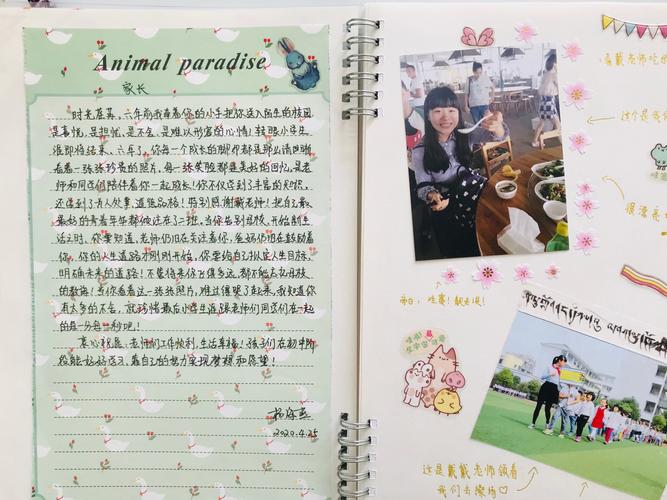 Animal paradise
家长
时光荏苒，六年前我牵着你的小手把你送入陌生的校园
是喜悦，是担忧，是不舍，是难以形容的心情！转眼小学生
涯即将结束，六年了，你每一个成长的脚印都是那么清晰
看着一张张珍贵的照片，每一张笑脸都是美好的回忆，是老
师和同学们陪伴着你一起成长！你不仅学到了丰富的知识，
还学到了为人处事，道德品格！特别感谢戴老师！把自己最
最好的青春年华都倾注在了二班，当你告别母校，开始新生
活之时，你要知道，老师们仍旧在关注着你，爸妈仍旧在鼓励着
你，你的人生道路才刚刚开始，你要给自己拟定人生目标，
明确未来的道路！不管将来你飞得多远，都不能忘记母校
的教诲！当你看着这一张张照片，难过得哭了起来，我知道你
有太多的不舍，就珍惜最后小学生涯跟老师们同学们在一起
的每一分每一秒吧！
衷心祝愿：老师们工作顺利，生活幸福！孩子们在初中阶
段能好好学习，靠自己的努力实现梦想和愿望！
杨海燕
2020.4.25
戴老师吃
这个是我
很漂亮
哇塞！靓
这是戴戴老师领着
我们去操场